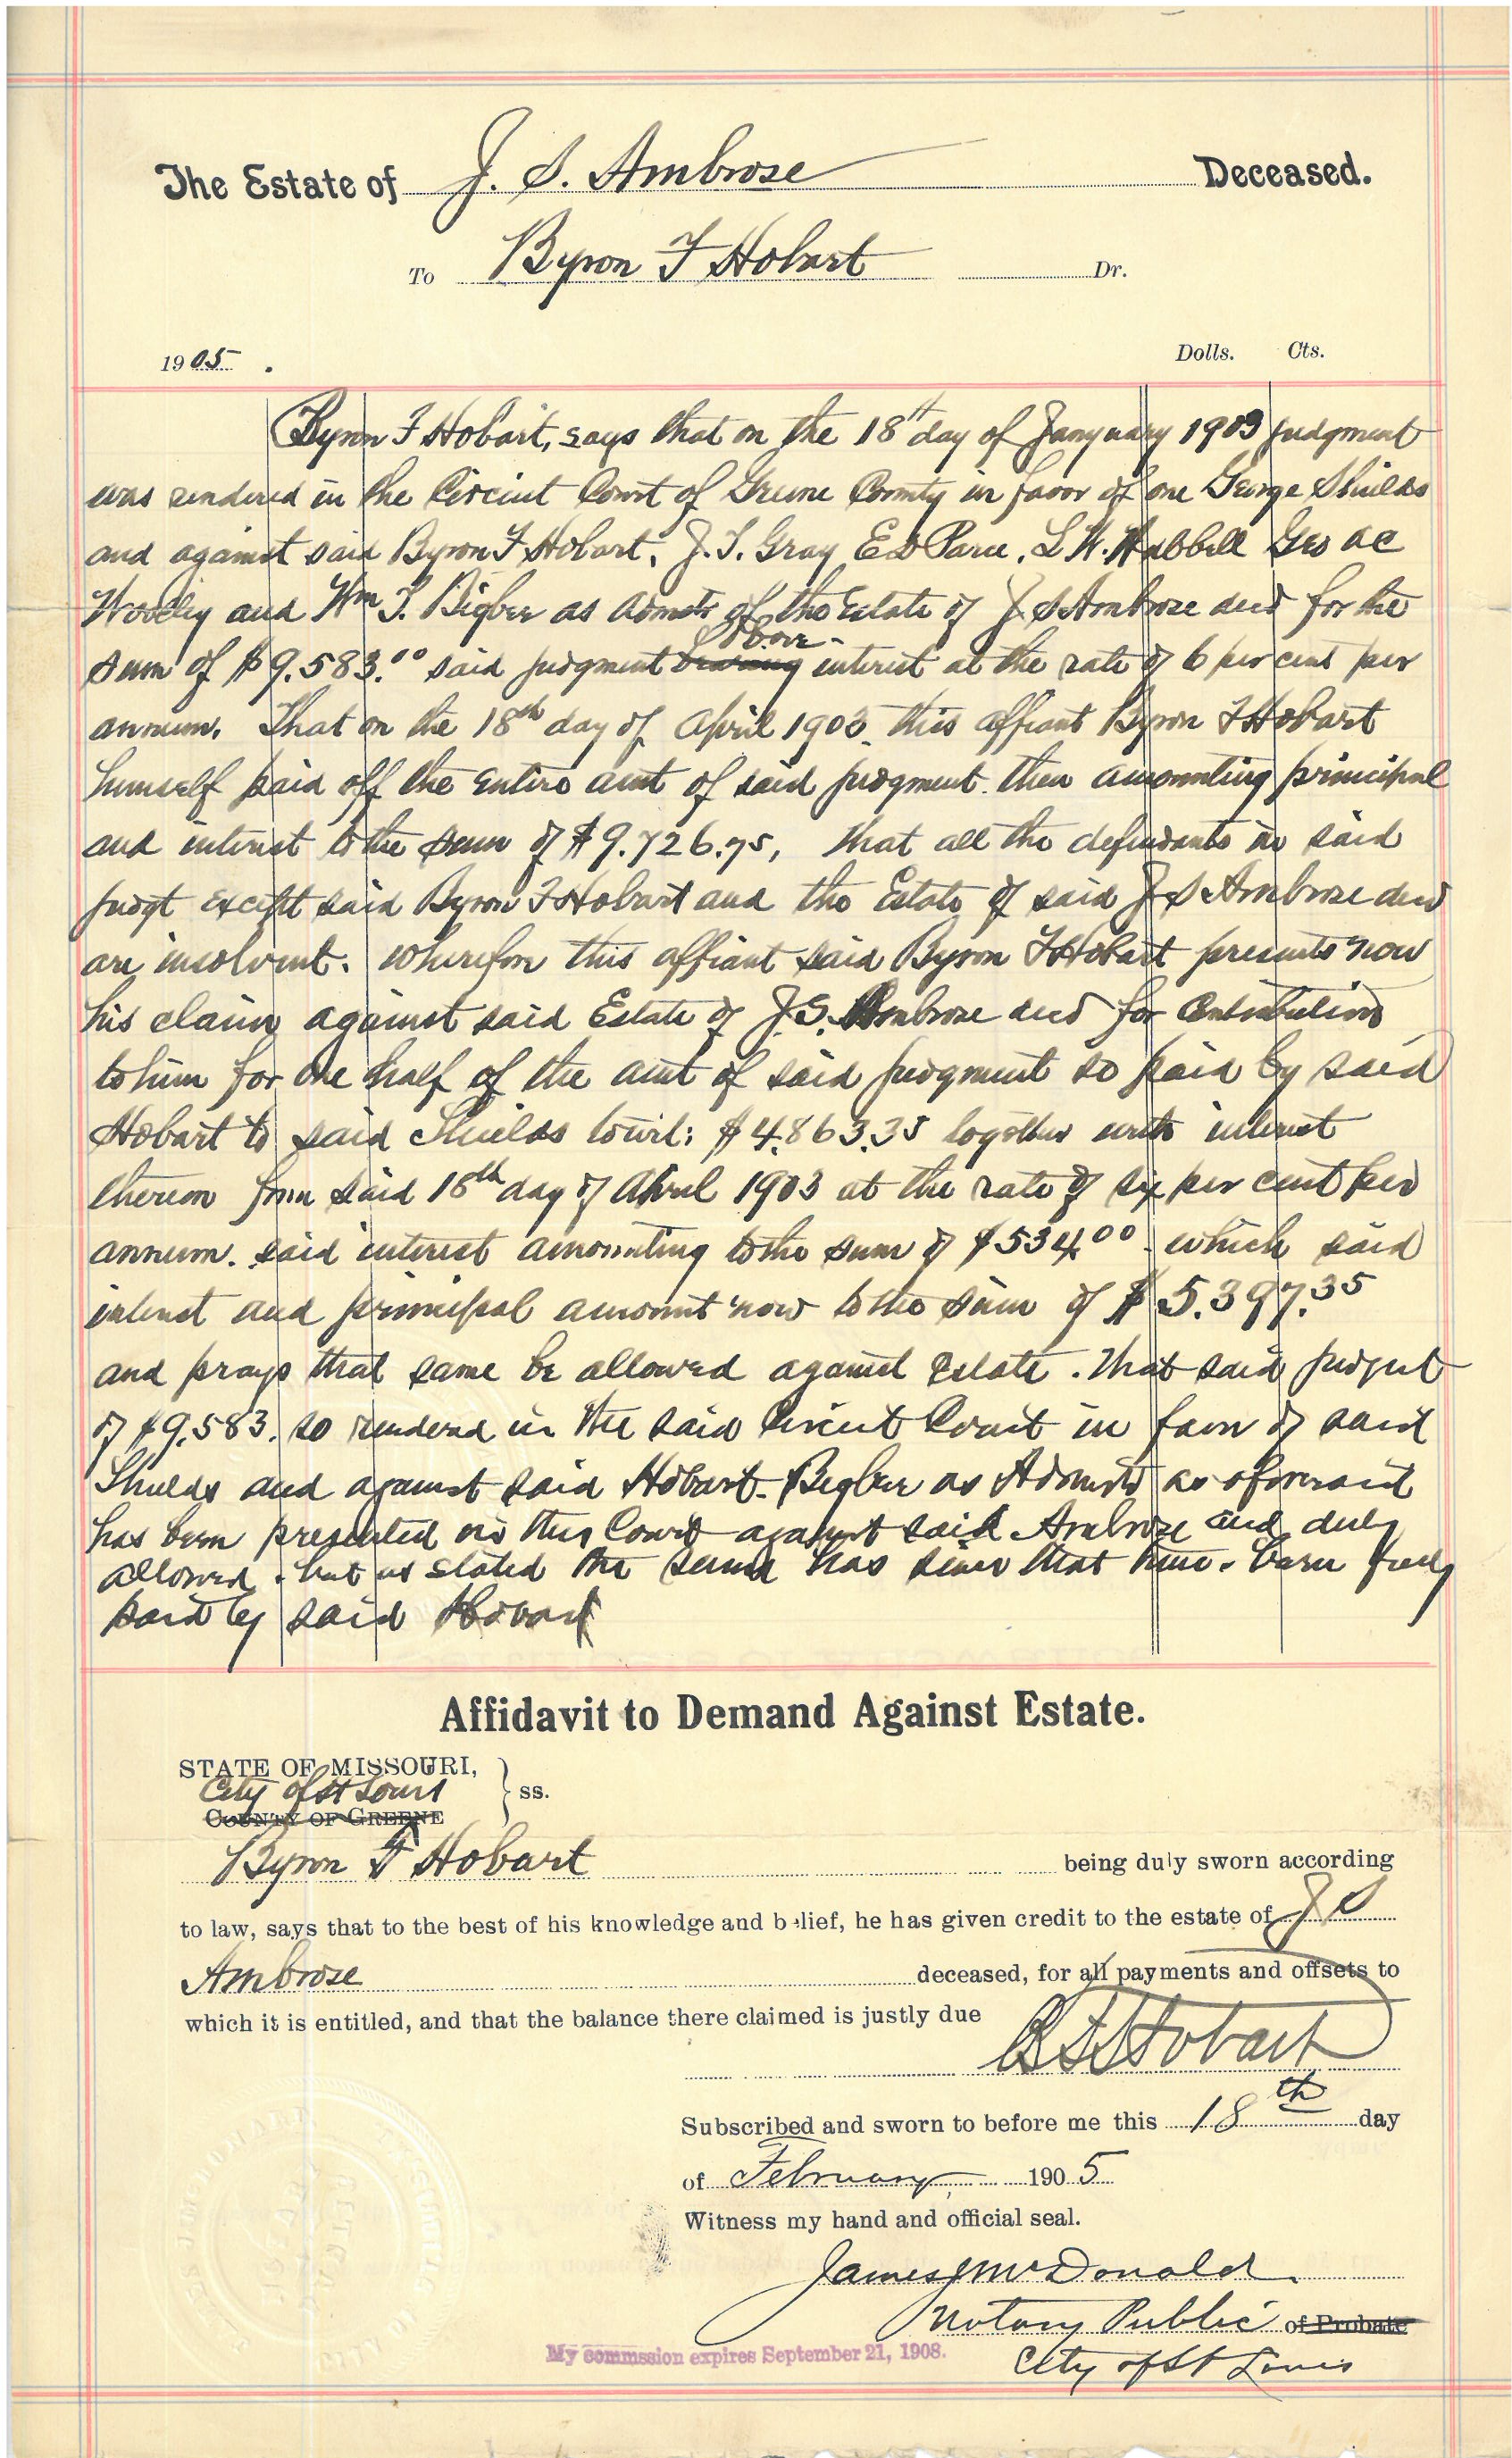 The Estate of J. S. Ambrose Deceased.
To Byron F Hobart Dr.
1905. Dolls. Cts.
Byron F Hobart, says that on the 18th day of Janyuary 1903 judgment
was rendered in the Circiut Court of Greene County in favor of one George Shields
and against said Byron F Hobart, J. T. Gray E D Parce, L W. Hubbell Geo AC
Woolley and Wm T. Bigbee as Admstr of the Estate of J S Ambrose decd for the
sum of $9.583.00 said judgment bearing bore interest at the rate of 6 per cent per
annum. That on the 18th day of April 1903 this affiant Byron F Hobart
himself paid off the entire amt of said judgment then amounting principal
and interest to the sum of $9.726.75, that all the defendants in said
judgt except said Byron F Hobart and the Estate of said J S Ambrose decd
are insolvent. wherefore this affiant said Byron F Hobart presents now
his claim against said Estate of J. S. Ambrose decd for Contribution
to him for one half of the amt of said judgment so paid by said
Hobart to said Shields towit: $4.863.35 together with interest
thereon from said 18th day of April 1903 at the rate of six per cent per
annum. said interest amounting to the sum of $534.00 which said
interest and principal amount now to the sum of $5.397.35
and prays that same be allowed against Estate. That said judgmt
of $9.583. so rendered in the said Circuit Court in favor of said
Shields and against said Hobart - Bigbee as Admstr as aforesaid
has been presented in this Court against said Ambrose and duly
allowed. but as stated the same has since that time. been fully
paid by said Hobart
Affidavit to Demand Against Estate.
STATE OF MISSOURI,
City of St Louis } ss.
COUNTY OF GREENE
Byron F Hobart being duly sworn according
to law, says that to the best of his knowledge and belief, he has given credit to the estate of J S
Ambrose deceased, for all payments and offsets to
which it is entitled, and that the balance there claimed is justly due
B F Hobart
Subscribed and sworn to before me this 18th day
of February 1905
Witness my hand and official seal.
James J McDonald
Notary Public of Probate
My commssion expires September 21, 1908.
City of St Louis